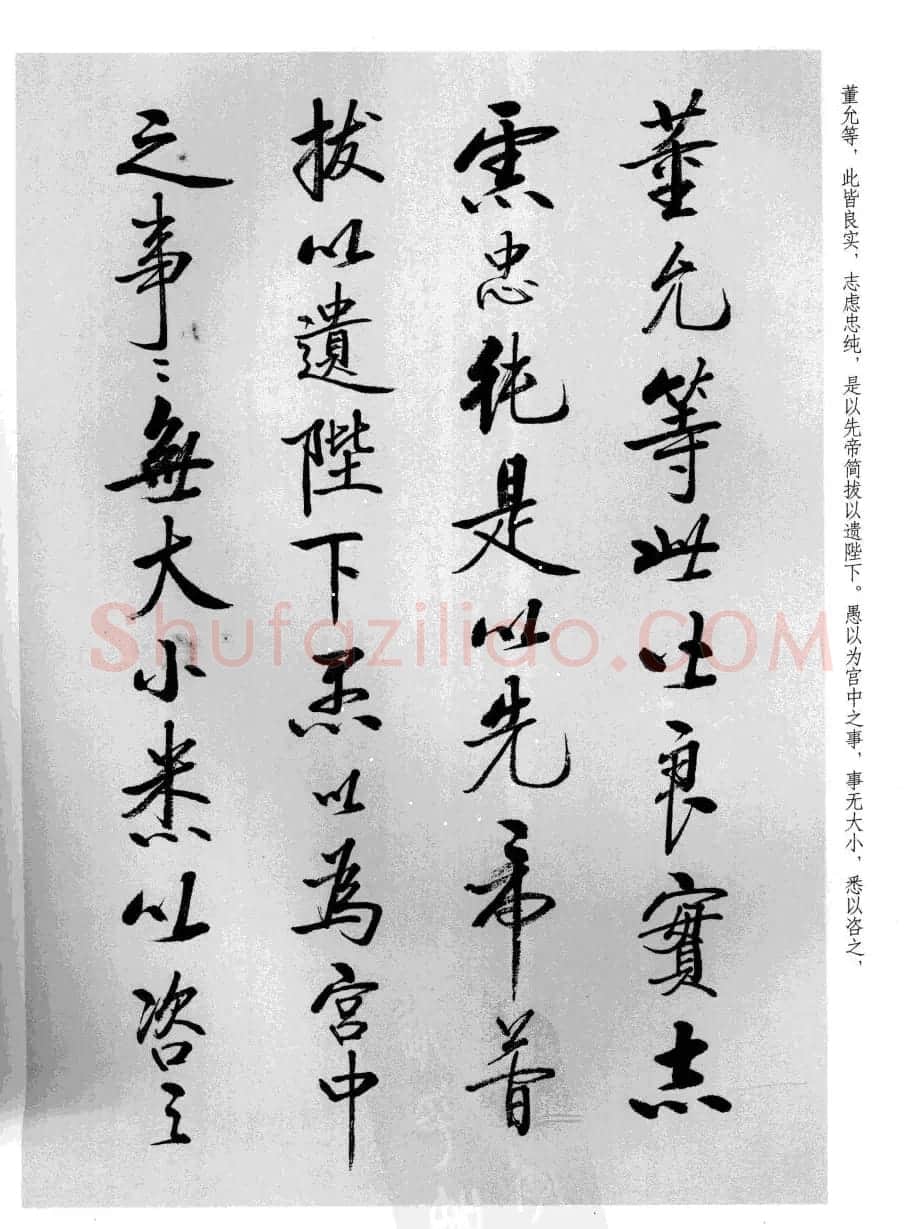 董允等，此皆良实，志虑忠纯，是以先帝简拔以遗陛下。愚以为宫中之事，事无大小，悉以咨之，
董允等此皆良實志
慮忠純是以先帝簡
拔以遺陛下愚以為宮中
之事〻無大小悉以咨之
Shufaziliao.COM